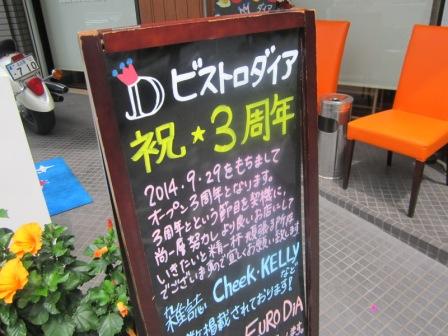 D ビストロダイア
祝★3周年
2014.9.29をもちまして
オープン3周年となります。
3周年とという節目を契機に、
尚一層努力しより良いお店にして
いきたいと精一杯頑張る所存
でございますので宜しくお願い致します
雑誌 Cheek・KELLY など
掲載されております!
EURO DiA
710